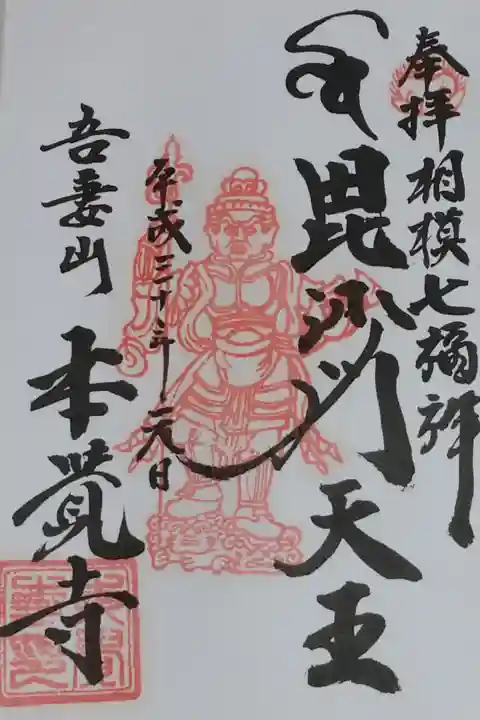 奉拝 相模七福神
毘沙門天王
平成三十年元日
吾妻山
本覚寺